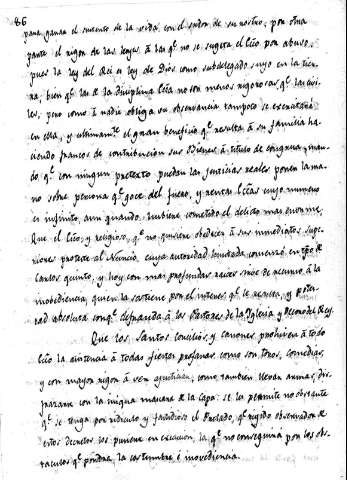 86
para ganar el sustento de la vida, con el sudor de su rostro, por otra
parte el rigor de las leyes à las qe. no se sugeta el Cco por abuso,
pues la ley del Rei es ley de Dios como subdelegado suyo en la tier-
ra, bien qe. las de la disciplina Cca no son menos rigorosas qe. las civi-
les, pero como à nadie obliga su observancia tampoco se
en ella, y ultimamte. el gran beneficio qe. resulta à su familia ha-
ciendo francos de contribucion sus Bienes à titulo de congrua, man-
do qe. con ningun pretexto puedan las justicias reales poner la ma-
no sobre persona qe. goce del fuero, y rentas Ccas cuyo numero
es infinito, aun quando hubiese cometido el delicto mas enorme,
Que el Cco, y religioso, qe. no quisiere obedecer à sus inmediatos supe-
riores proteste al Nuncio, cuya autoridad limitada comenzó en tpo de
Carlos quinto, y hoy con mas profundas raices sirve de recurso à la
inobediencia, quien la sostiene por el interes qe. le resulta, y potes-
tad absoluta conqe. defrauda à los Pastores de la Yglesia y Decoro del Rey.
Que los Santos Concilios, y canones prohiven à todo
Cco la asistencia à todas fiestas profanas como son toros, comedias,
y con mayor rigor à ver ajusticiar, como tambien llevar armas, dis-
frazarse con la iniqua manera de la capa: se le permite no obstante
qe. se tenga por ridiculo y fastidioso el Prelado, qe. rigido observador de
estos decretos los pusiere en execucion, lo qe. no conseguira por los obs-
taculos qe. pondra la costumbre è inovediencia.